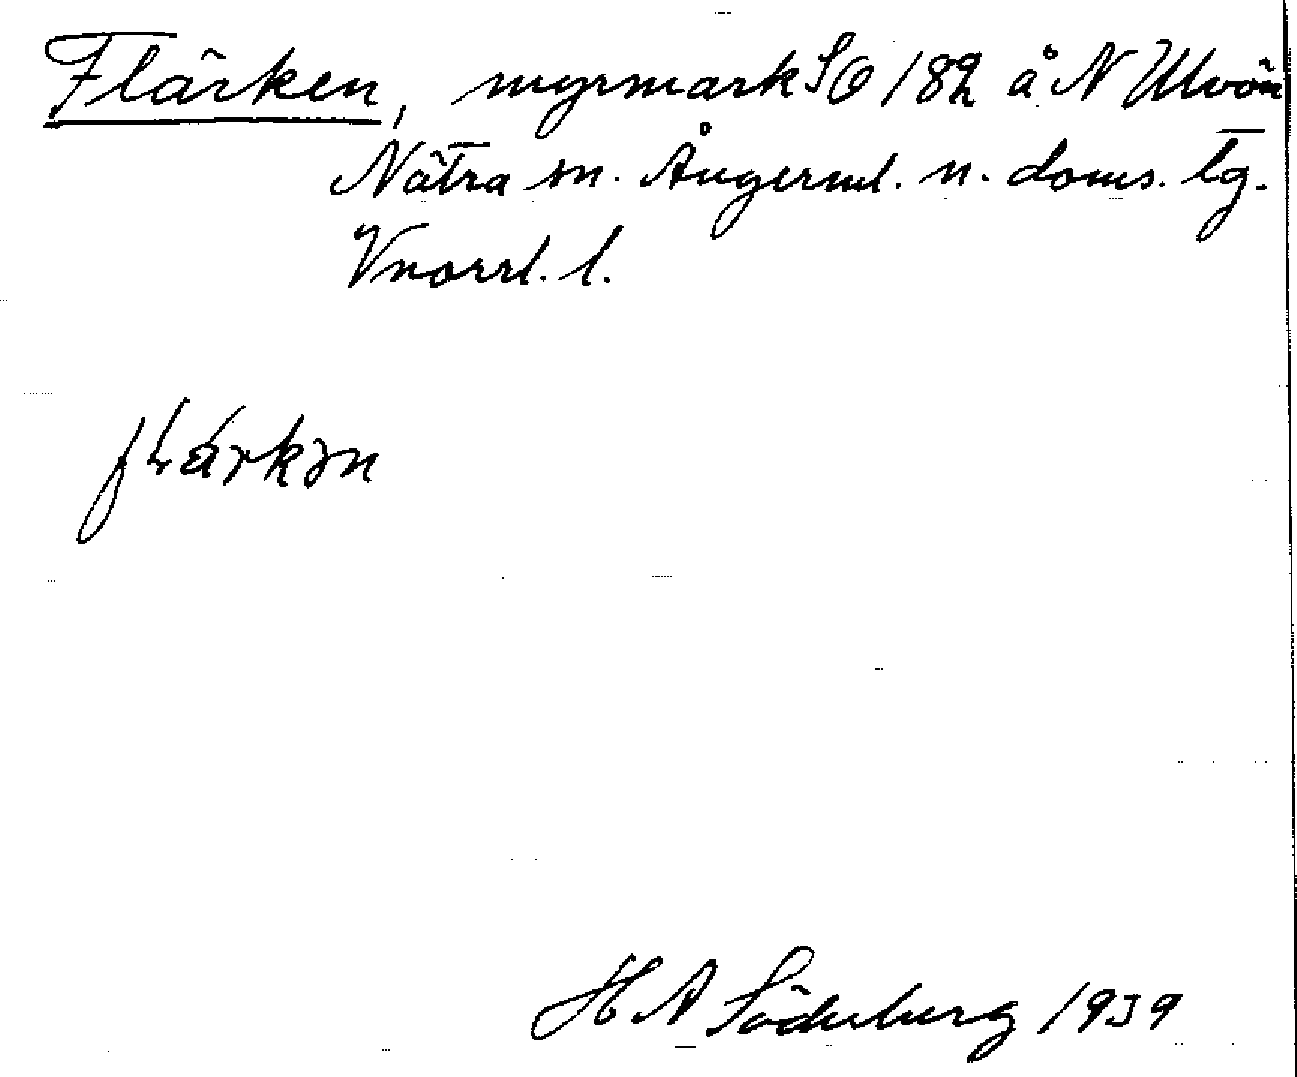 Flärken, myrmark SO/82 å N Ulvön
Nätra sn. Ångerml. n. doms. tg.
Vnorrl. l.
flärkən
H A Söderberg 1939